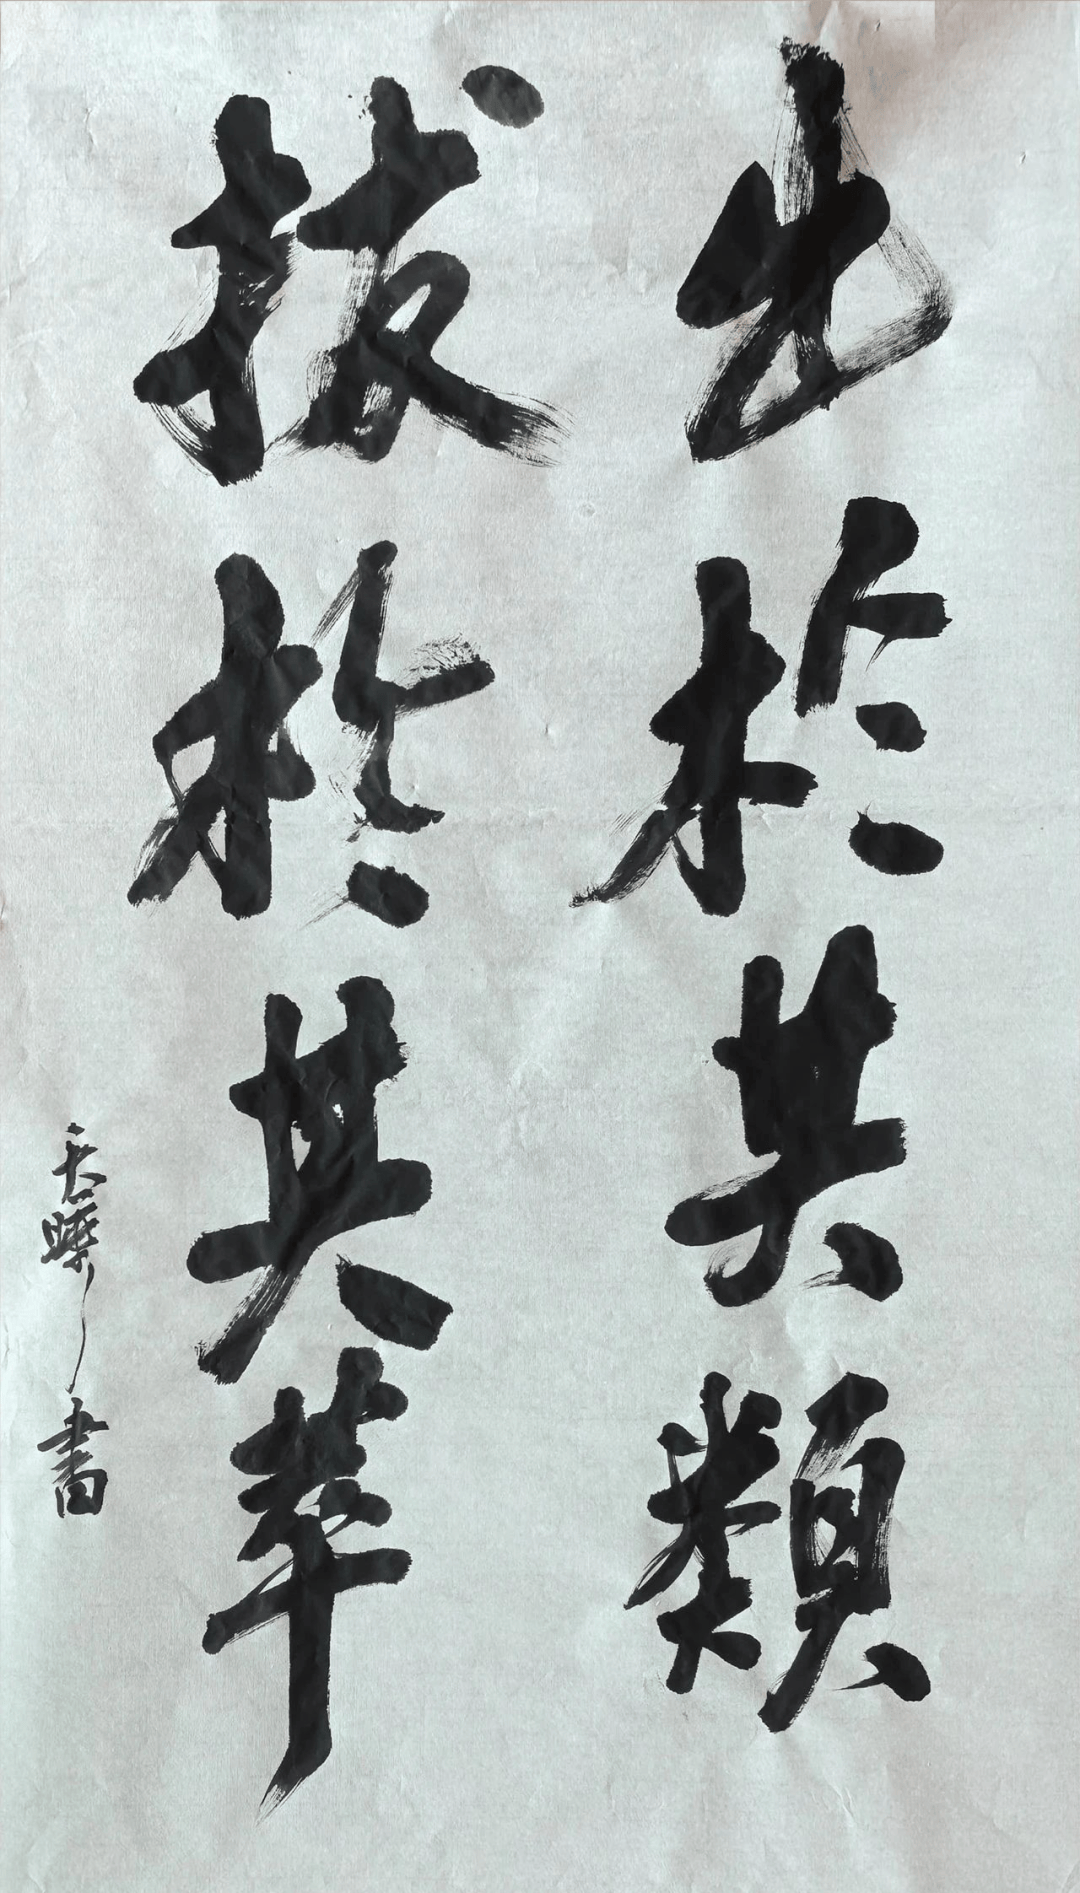 出於其類
拔於其萃
天曄書